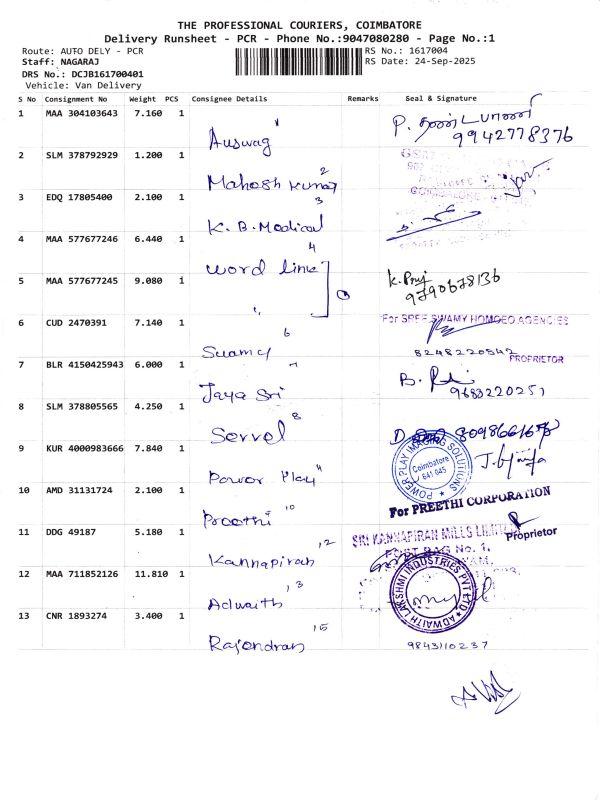 THE PROFESSIONAL COURIERS, COIMBATORE
Delivery Runsheet - PCR - Phone No.:9047080280 - Page No.:1
Route: AUTO DELY - PCR
RS No.: 1617004
Staff: NAGARAJ
RS Date: 24-Sep-2025
DRS No.: DCJB161700401
Vehicle: Van Delivery
S No Consignment No Weight PCS Consignee Details Remarks Seal & Signature
1 MAA 304103643 7.160 1
Auswag
P. தண்டபாணி
9942778376
2 SLM 378792929 1.200 1
Mahesh Kumar 2
3 EDQ 17805400 2.100 1
K.B. Medical 3
4 MAA 577677246 6.440 1
word line 4
5 MAA 577677245 9.080 1
9790678136
6 CUD 2470391 7.140 1
Swamy 6
For SREE SWAMY HOMOEO AGENCIES
8248220542
PROPRIETOR
7 BLR 4150425943 6.000 1
Jaya Sri 7
9683220251
8 SLM 378805565 4.250 1
Servel 8
9 KUR 4000983666 7.840 1
Power Play
POWER PLAY IMAGING SOLUTIONS
Coimbatore
641 045
10 AMD 31131724 2.100 1
Preethi 10
For PREETHI CORPORATION
Proprietor
11 DDG 49187 5.180 1
Kannapiran 12
SRI KANNAPIRAN MILLS LIMITED
POST BAG No. 1,
12 MAA 711852126 11.810 1
Adwaith 13
ADWAITH LAKSHMI INDUSTRIES PVT LTD
13 CNR 1893274 3.400 1
Rajendran 15
9843110237